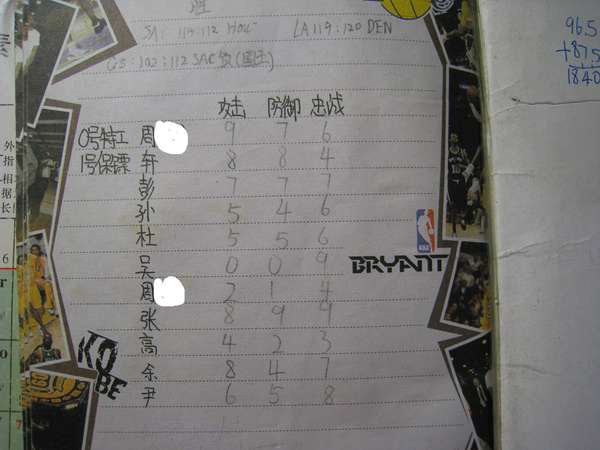 胜
SA: 119:112 HOU
LA 119:120 DEN
GS:102:112 SAC 负(国王)
攻击 防御 忠诚
0号特工 周 9 7 6
1号保镖 轩 8 8 4
彭 7 7 7
孙 5 4 6
杜 5 5 6
吴 0 0 9
周 2 1 4
张 8 9 9
高 4 2 3
余 8 4 7
尹 6 5 8
NBA
BRYANT
KO
BE
96.5
+87.5
1840
素
外
指
相
据
长
6
r
7